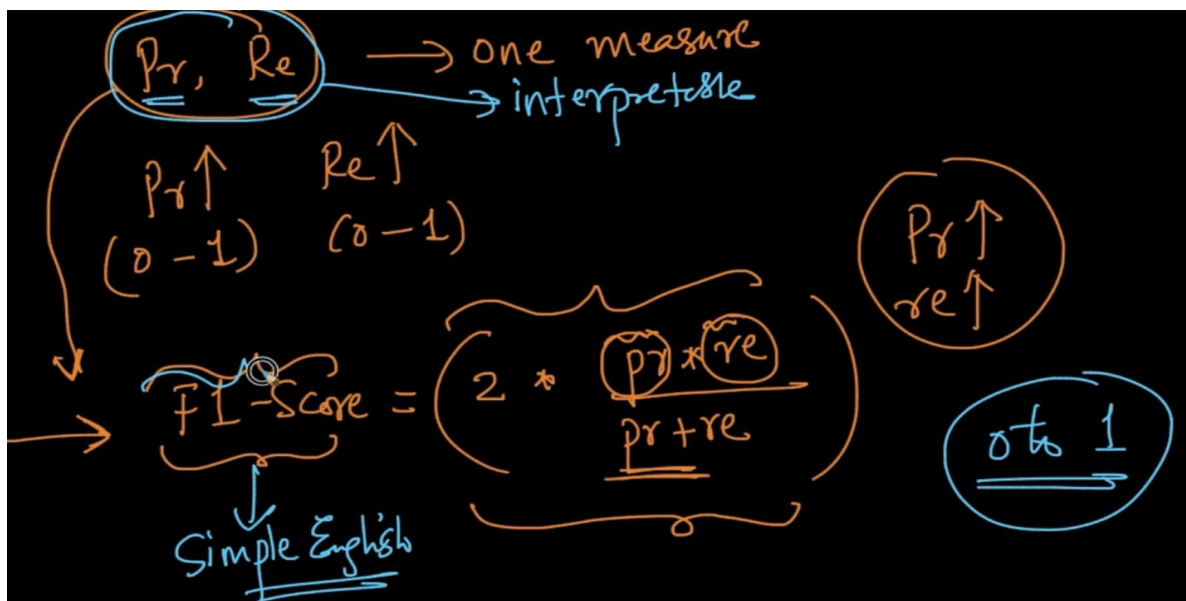 Pr, Re → one measure
→ interpretable
Pr↑ Re↑
(0 - 1) (0 - 1)
Pr↑
re↑
F1-Score = ( 2 * pr * re / pr + re )
0 to 1
Simple English